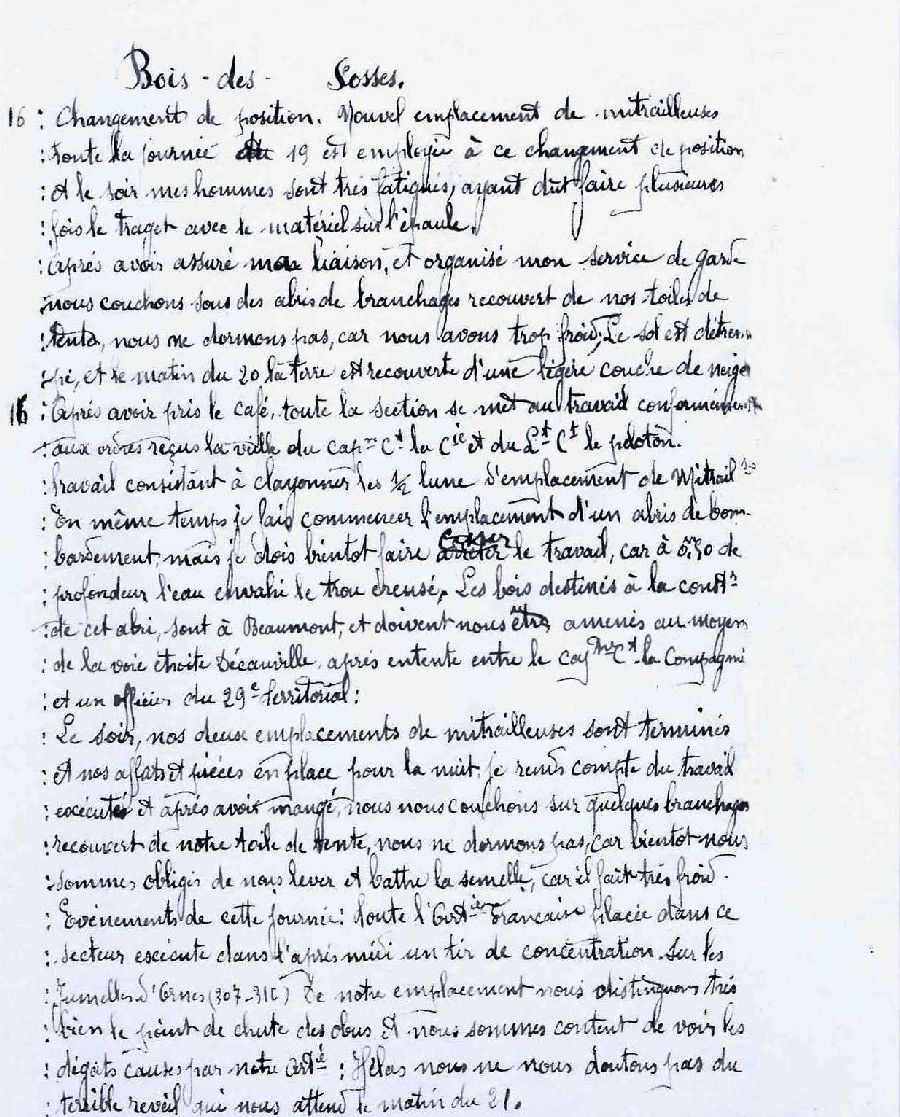 Bois-des- Fosses.
16 : Changement de position. Nouvel emplacement de mitrailleuses
: toute la journée du 19 est employée à ce changement de position
: et le soir mes hommes sont très fatigués, ayant dût faire plusieures
: fois le traget avec le matériel sur l'épaule.
: après avoir assuré ma liaison, et organisé mon service de garde
: nous couchons sous des abris de branchages recouvert de nos toiles de
: tente, nous ne dormons pas, car nous avons trop froid, Le sol est détrem-
: pé, et le matin du 20 la terre est recouverte d'une légère couche de neige
16 : Après avoir pris le café, toute la section se met au travail conformément
aux ordres reçus la veille du Cap.ne Ct la Cie et du Lt Ct le peloton.
: travail consistant à clayonner les 1/2 lune d'emplacement de Mitrail.ses
: En même temps je fais commencer l'emplacement d'un abris de bom-
: bardement, mais je dois bientot faire cesser le travail, car à 0m,50 de
: profondeur l'eau envahi le trou creusé. Les bois destinés à la const.on
de cet abri, sont à Beaumont, et doivent nous être amenés au moyen
: de la voie étroite Décauville, après entente entre le cap.ne Ct la Compagnie
: et un officier du 29e territorial :
: Le soir, nos deux emplacements de mitrailleuses sont terminés
: et nos affuts et pièces en place pour la nuit, je rends compte du travail
: exécutés et après avoir mangé, nous nous couchons sur quelques branchages
: recouvert de notre toile de tente, nous ne dormons pas, car bientot nous
: sommes obligés de nous lever et battre la semelle, car il fait très froid.
: Evénements de cette journée : toute l'Artie Française placée dans ce
: secteur exécute dans l'après midi un tir de concentration sur les
: Jumelles d'Ornes (307-310) De notre emplacement nous distinguons très
: bien le point de chute des obus et nous sommes content de voir les
: dégats causés par notre artie : Hélas nous ne nous doutons pas du
: terrible reveil qui nous attend le matin du 21.